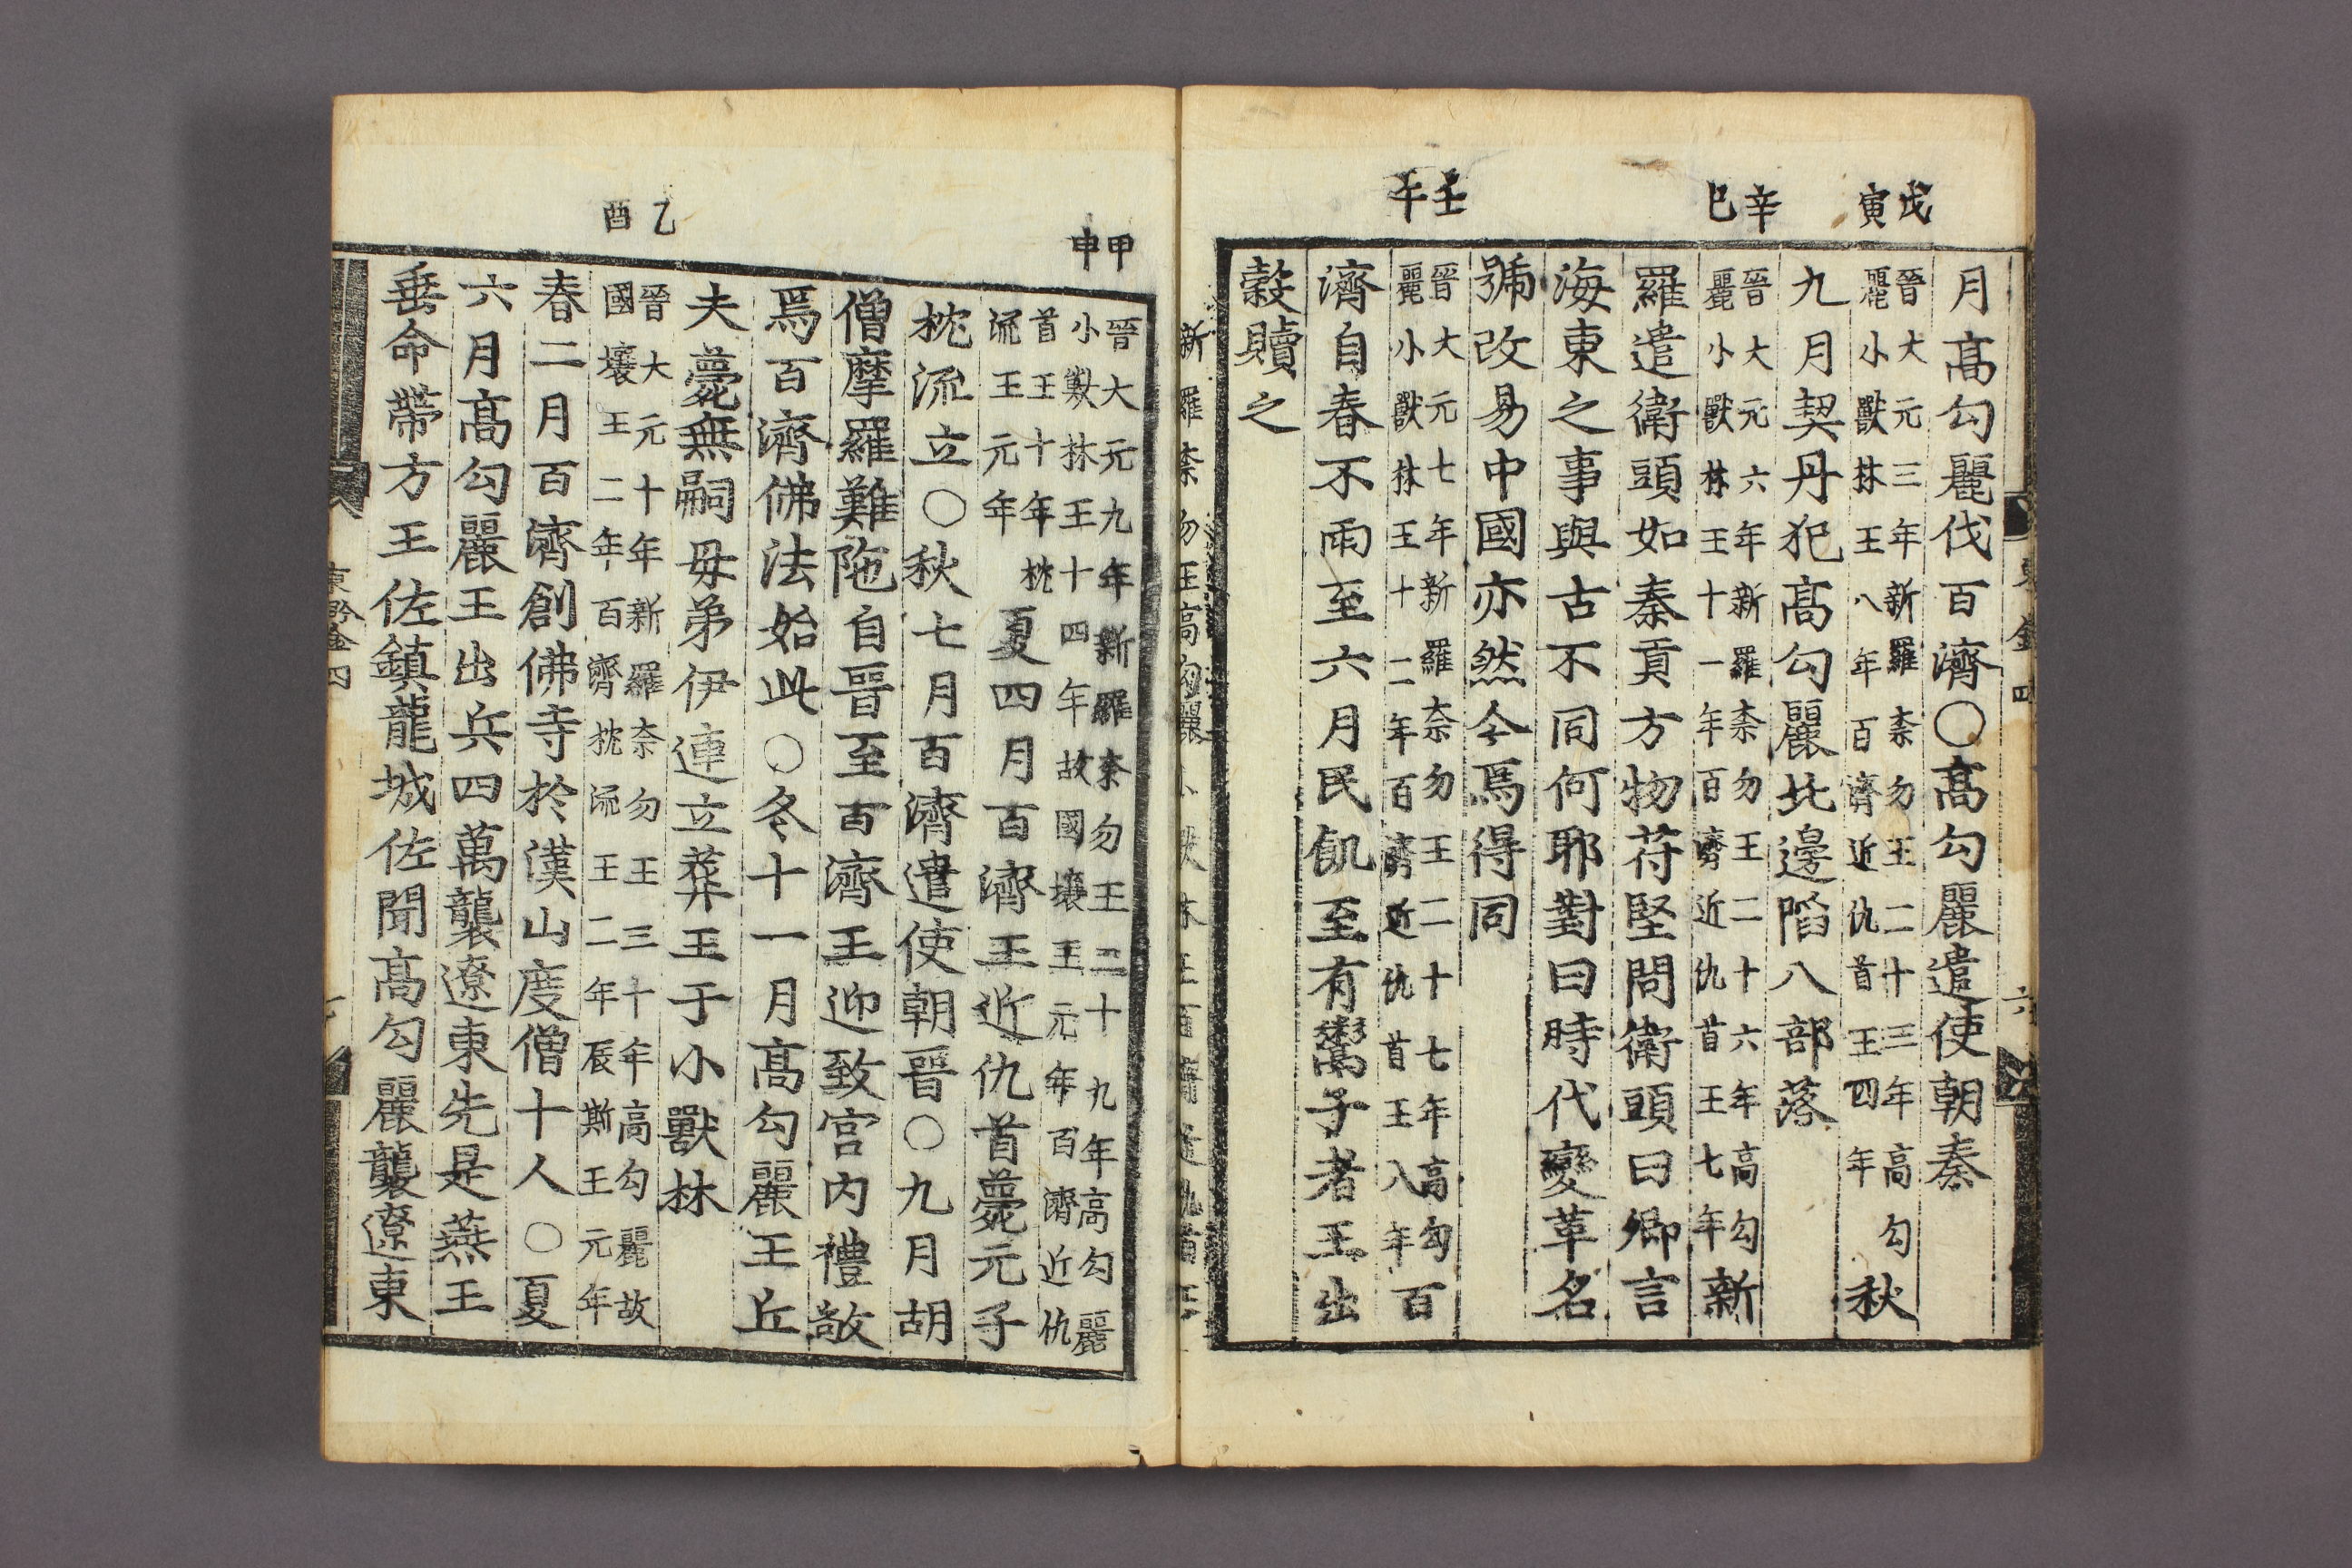 戊寅
辛巳
壬午
月高勾麗伐百濟〇高勾麗遣使朝秦
晉大元三年新羅柰勿王二十三年高勾
麗小獸林王八年百濟近仇首王四年
秋
九月契丹犯高勾麗北邊陷八部落
晉大元六年新羅柰勿王二十六年高勾
麗小獸林王十一年百濟近仇首王七年
新
羅遣衛頭如秦貢方物苻堅問衛頭曰卿言
海東之事與古不同何耶對曰時代變革名
號改易中國亦然今焉得同
晉大元七年新羅奈勿王二十七年高勾
麗小獸林王十二年百濟近仇首王八年
百
濟自春不雨至六月民飢至有鬻子者王出
穀贖之
甲申
乙酉
晉大元九年新羅柰勿王二十九年高勾麗
小獸林王十四年故國壤王元年百濟近仇
首王十年枕
流王元年
夏四月百濟王近仇首薨元子
枕流立〇秋七月百濟遣使朝晉〇九月胡
僧摩羅難陁自晉至百濟王迎致宮內禮敬
焉百濟佛法始此〇冬十一月高勾麗王丘
夫薨無嗣母弟伊連立葬王于小獸林
晉大元十年新羅奈勿王三十年高勾麗故
國壤王二年百濟枕流王二年辰斯王元年
春二月百濟創佛寺於漢山度僧十人〇夏
六月高勾麗王出兵四萬襲遼東先是燕王
垂命帶方王佐鎮龍城佐聞高勾麗襲遼東